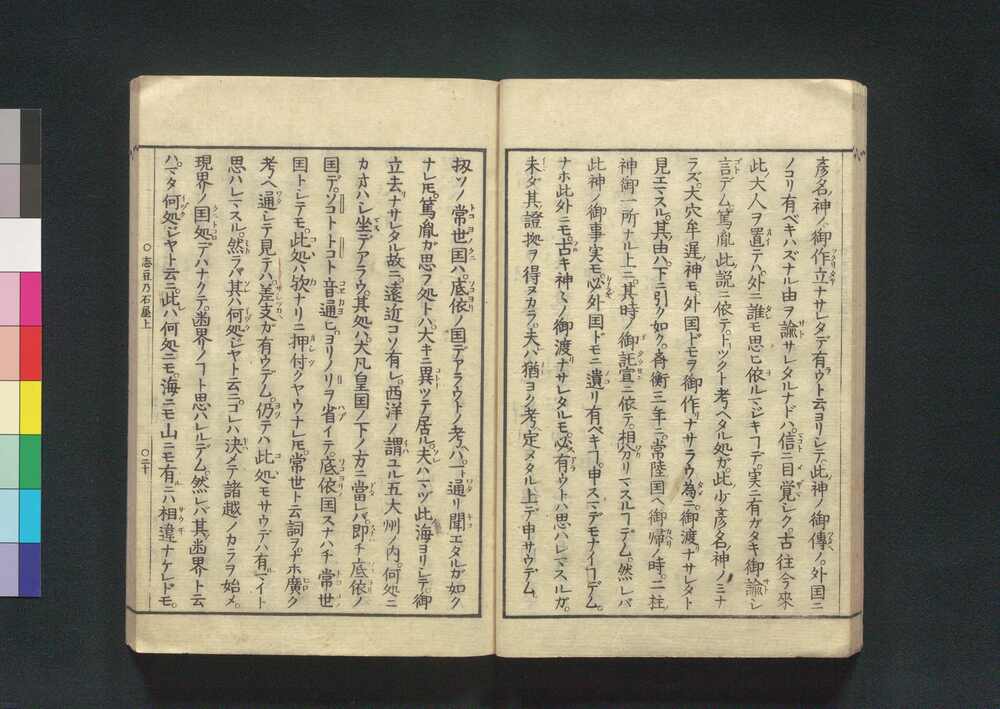 彦名神ノ御作立ナサレタデ有ウト云ヨリシテ此神ノ御傳ノ。外国ニ
ノコリ有ベキハズナル由ヲ諭サレタルナドハ。信ニ目覚シク。古往今来
此大人ヲ置テハ。外ニ誰モ思ヒ依ルマジキヿデ。実ニ有ガタキ御諭シ
言デム。篤胤此説ニ依テ。トツクト考ヘタル処ガ。此少彦名神ノミナ
ラズ。大穴牟遅神モ。外国ドモヲ御作リナサラウ為ニ。御渡リナサレタト
見エマスル。其由ハ下ニ引ク如ク。斉衡三年ニ。常陸国ヘ御帰ノ時。二柱ノ
神御一所ナル上ニ。其時ノ御託宣ニ依テ。相分リマスルヿデム。然レバ
此神ノ御事実モ。必外国ドモニ遺リ有ベキヿ。申スマデモナイヿデム。
ナホ此外ニモ。古キ神々ノ御渡リナサレタルモ。必有ウトハ思ハレマスルガ。
未ダ其證拠ヲ得ヌカラ。夫ハ猶ヨク考定メタル上デ申サウデム。
扨ソノ常世国ハ。底依ノ国デアラウトノ考ハ。一ト通リ聞エタルガ如ク
ナレ𪜈。篤胤ガ思フ処トハ。大キニ異ツテ居ル。夫ハマヅ此海ヨリシテ。御
立去ナサレタル故ニ。遠近コソ有レ。西洋ノ謂ユル五大州ノ内。何処ニ
カオハシ坐デアラウ。其処ハ大凡皇国ノ下ノ方ニ當レバ。即チ底依ノ
国デ。ソコトトコト音通ヒ。ヨリノリヲ省イテ。底依国スナハチ常世
国トシテモ。此処ハ欤ナリニ押付クヤウナレ𪜈。常世ト云詞ヲ。ナホ廣ク
考ヘ通シテ見テハ。差支ガ有ウデム。仍テハ此処モサウデハ有マイト
思ハレマスル。然ラバ其ハ何処ジヤト云ニ。コレハ決メテ諸越ノカラヲ始メ。
現界ノ国処デハナクテ。幽界ノヿト思ハレルデム。然レバ其幽界ト云
ハ。マタ何処ジヤト云ニ。此ハ何処ニモ。海ニモ山ニモ有ニハ相違ナケレドモ。
○志豆乃石屋上
○二十